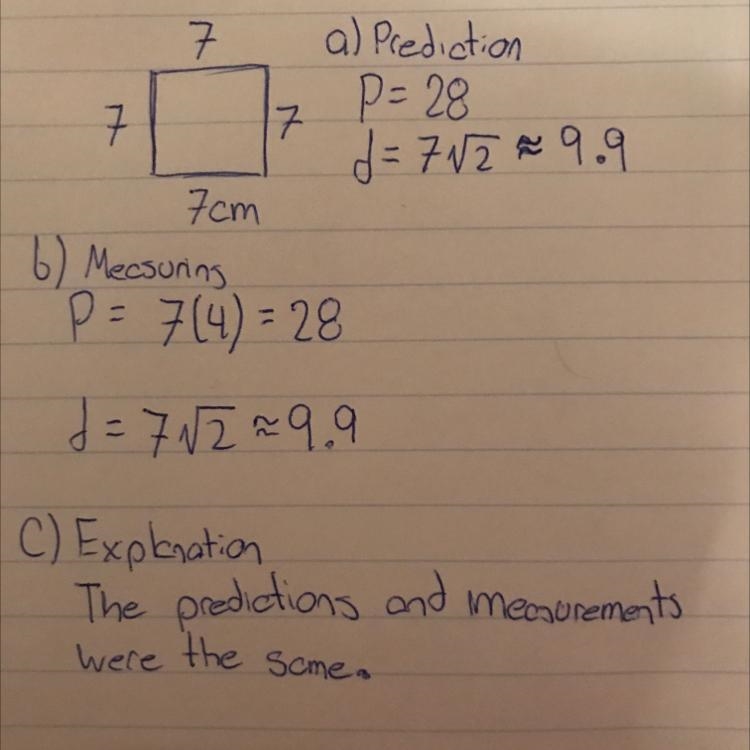 7
7
7
7cm
a) Prediction
P = 28
d = 7√2 ≈ 9.9
b) Measuring
P = 7(4) = 28
d = 7√2 ≈ 9.9
C) Explanation
The predictions and measurements
were the same.